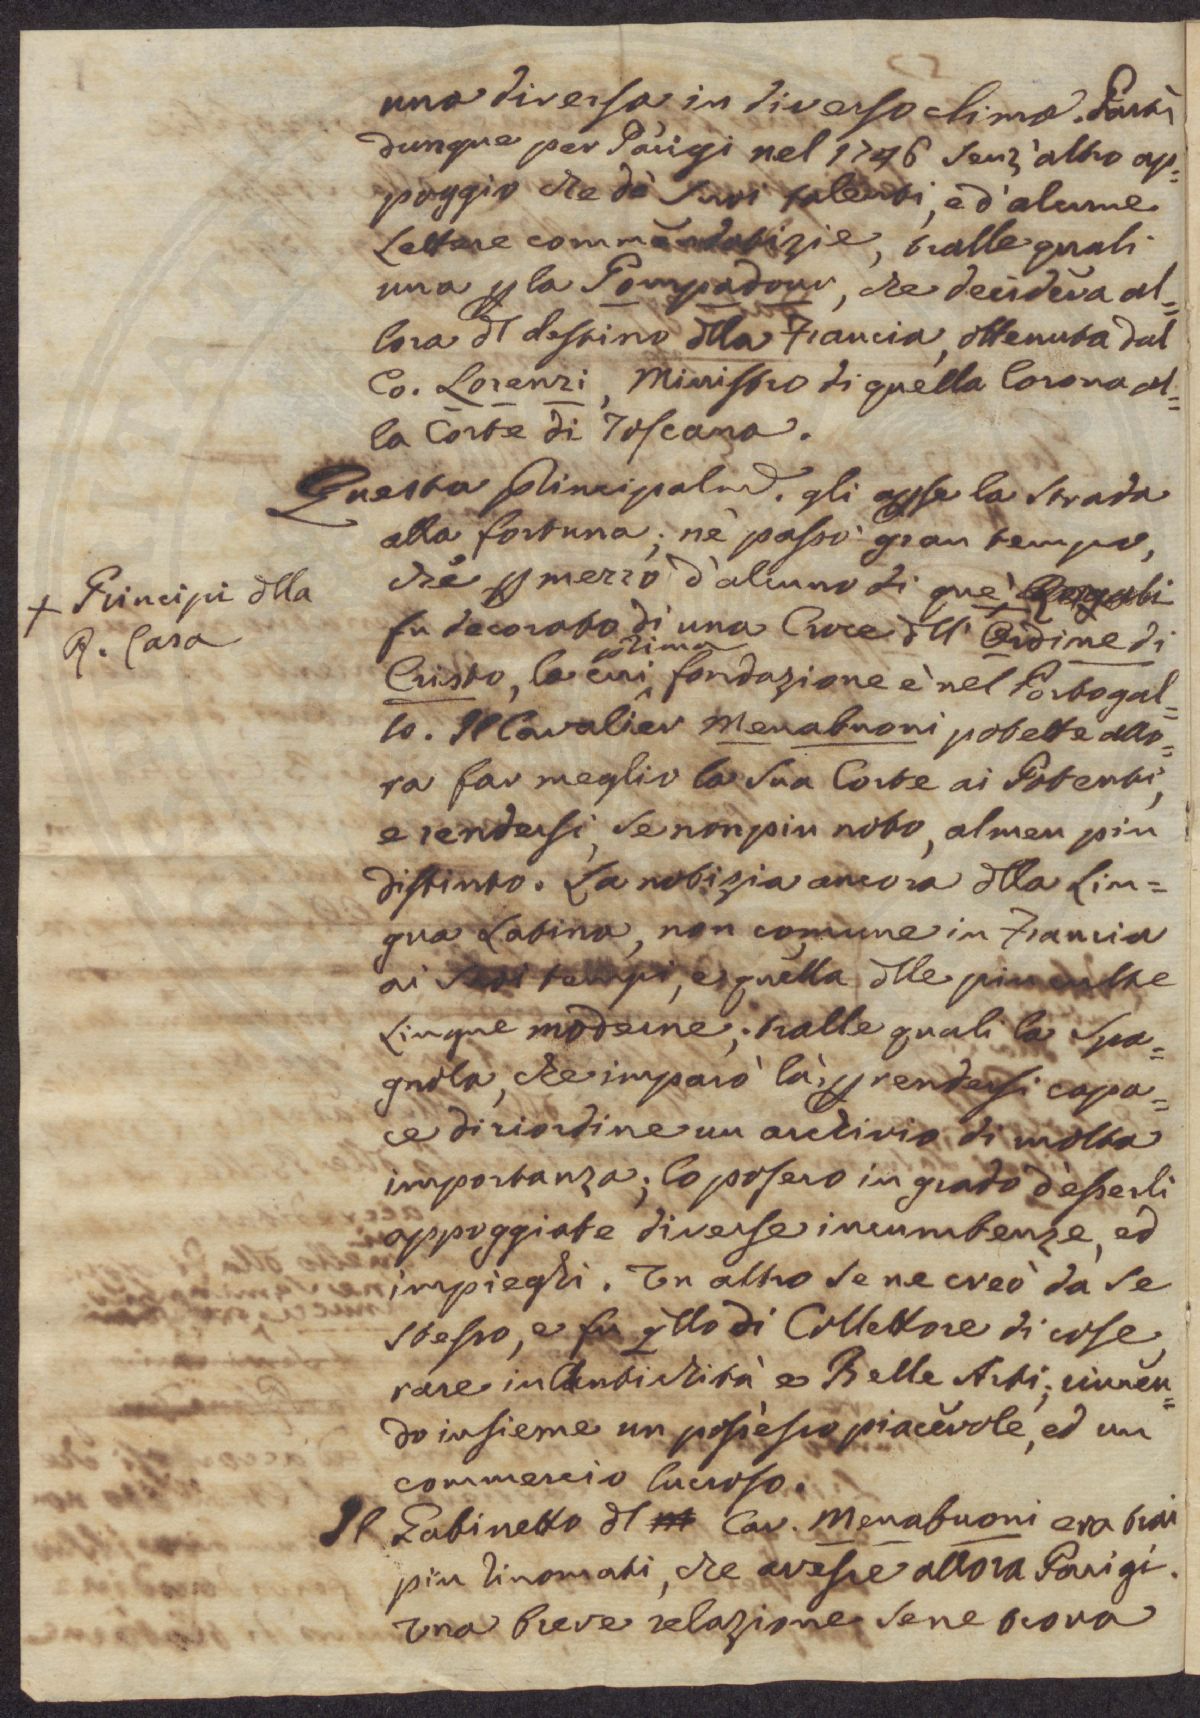 una diversa in diverso clima. Partì
dunque per Parigi nel 1746 senz'altro ap=
poggio che dè suoi talenti, e d'alcune
Lettere commendatizie, tralle quali
una p la Pompadour, che decideva al=
lora dl destino dlla Francia, ottenuta dal
Co. Lorenzi, Ministro di quella Corona al=
la Corte di Toscana.
Questa principalm.e gli apse la strada
alla fortuna; nè passò gran tempo,
che p mezzo d'alcuno di que'
+ Principi dlla
R. Casa
fu decorato di una Croce dll' Ordine di
Cristo, la cui prima fondazione è nel Portogal=
lo. Il Cavalier Menabuoni potette allo=
ra far meglio la sua Corte ai Potenti,
e rendersi, se non piu noto, almen piu
distinto. La notizia ancora dlla Lin=
gua Latina, non comune in Francia
ai suoi tempi, e quella dlle piu culte
Lingue moderne, tralle quali la Spa=
gnola, che imparò là p rendersi capa=
ce di riordinare un archivio di molta
importanza; lo posero in grado d'esserli
appoggiate diverse incumbenze, ed
impieghi. Un altro se ne creò da se
stesso, e fu qllo di Collettore di cose
rare in Antichità e Belle Arti, riunen=
do insieme un possesso piacevole, ed un
commercio lucroso.
Il Gabinetto dl Cav. Menabuoni era trai
piu rinomati, che avesse allora Parigi.
Una breve relazione se ne trova